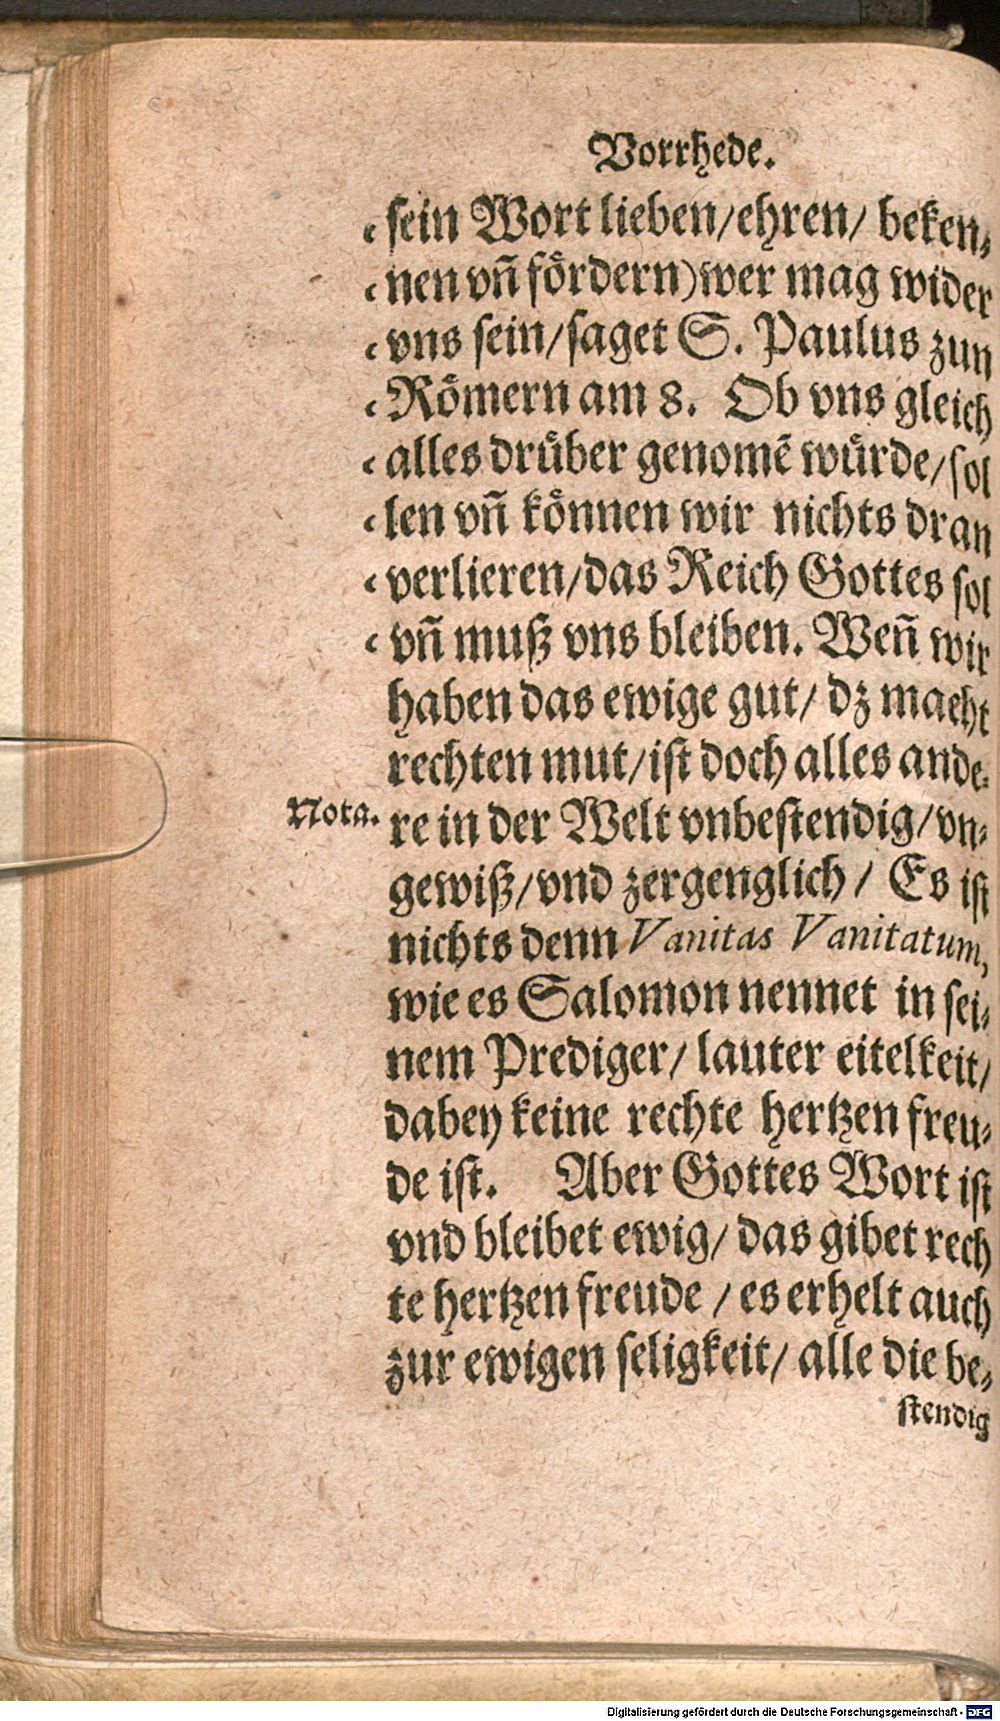 Vorrhede.
sein Wort lieben/ehren/ beken⸗
nen vñ foͤrdern)wer mag wider
vns sein/saget S. Paulus zun
Roͤmern am 8. Ob vns gleich
alles druͤber genomẽ wuͤrde/sol
len vñ koͤnnen wir nichts dran
verlieren/das Reich Gottes sol
vñ muß vns bleiben. Weñ wir
haben das ewige gut/ dz macht
rechten mut/ist doch alles ande⸗
Nota.
re in der Welt vnbestendig/vn⸗
gewiß/vnd zergenglich / Es ist
nichts denn Vanitas Vanitatum,
wie es Salomon nennet in sei⸗
nem Prediger/ lauter eitelkeit/
dabey keine rechte hertzen freu⸗
de ist. Aber Gottes Wort ist
vnd bleibet ewig/ das gibet rech
te hertzen freude / es erhelt auch
zur ewigen seligkeit/ alle die be⸗
stendig
Digitalisierung gefördert durch die Deutsche Forschungsgemeinschaft - DFG